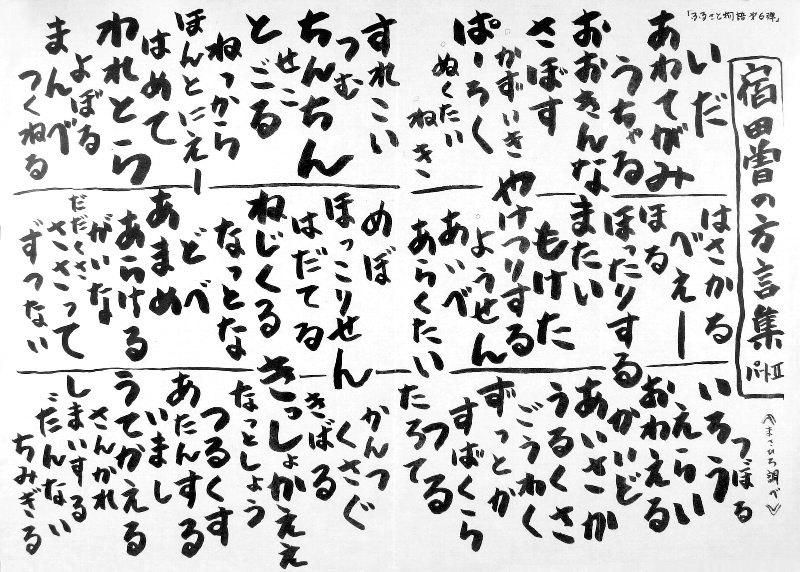 「ふるさと物語第6弾」
宿田曽の方言集 パートⅡ
《まさひろ調べ》
いだ
あわてがみ
うちゃる
おおきんな
さぼす
ぱーろく
かずいき
ぬくたい
ねき
すれこい
つむ
ちんちん
せこ
とごる
ねっから
ほんとにえー
はめて
われとら
よぼる
まんべ
つくねる
はさかる
べえー
ほる
ほったりする
またい
もけた
やけつりする
ようせん
あいべ
あらくたい
めぼ
ほっこりせん
はだてる
ねじくる
なっとな
どべ
あまめ
あらける
がいな
ささって
だだくさ
ずつない
つぼる
いろう
えらい
おわえる
かいど
あいさか
うるくさ
ごうわく
ずっとか
すばくら
つる
たろて
かんつぐ
くさぐ
きばる
きっしょかええ
なっとしょう
つるくす
あたんする
いまし
うてかえる
さんがれ
しまいする
だんない
ちみぎる